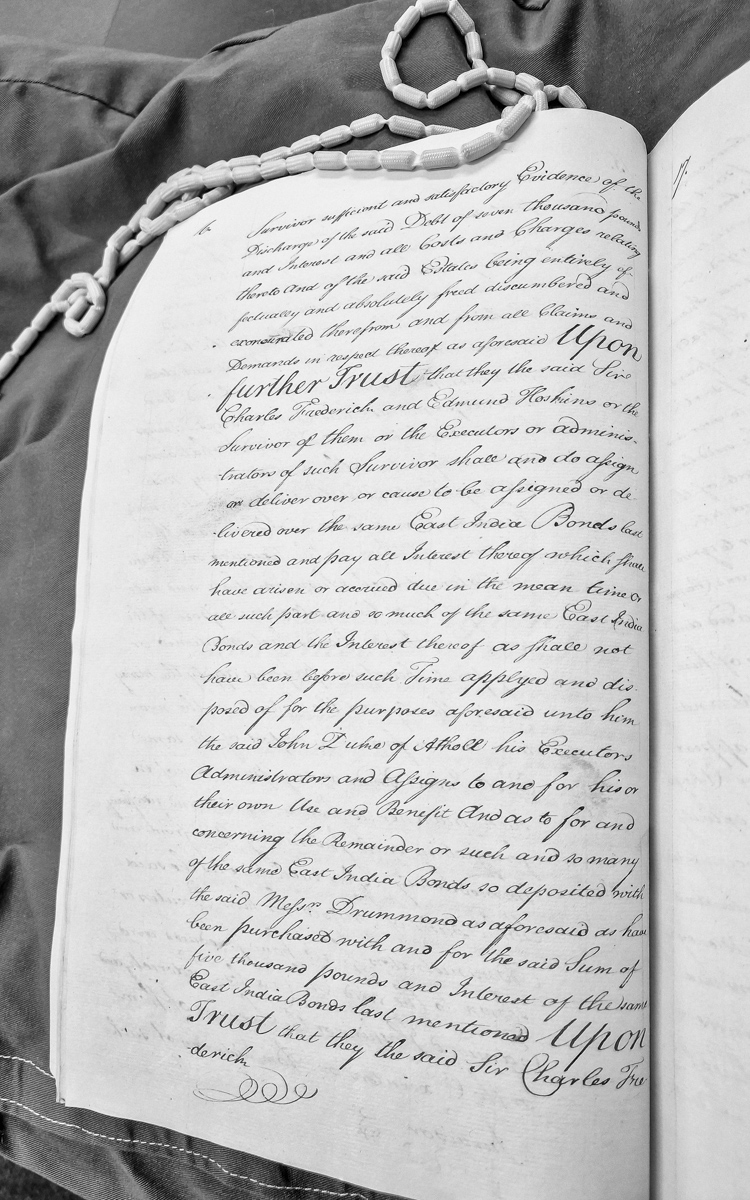 6.
Survivor sufficient and satisfactory Evidence of the
Discharge of the said Debt of seven thousand pounds
and Interest and all Costs and Charges relating
thereto And of the said Estates being entirely ef
fectually and absolutely freed discumbered and
exonerated therefrom and from all Claims and
Demands in respect thereof as aforesaid Upon
further Trust that they the said Sir
Charles Frederick and Edmund Hoskins or the
Survivor of them or the Executors or adminis-
trators of such Survivor shall and do assign
or deliver over or cause to be assigned or de
livered over the same East India Bonds last
mentioned and pay all Interest thereof which shall
have arisen or accrued due in the mean time or
all such part and so much of the same East India
Bonds and the Interest thereof as shall not
have been before such Time applyed and dis-
posed of for the purposes aforesaid unto him
the said John Duke of Atholl his Executors
Administrators and Assigns to and for his or
their own Use and Benefit And as to for and
concerning the Remainder or such and so many
of the same East India Bonds so deposited with
the said Messrs. Drummond as aforesaid as have
been purchased with and for the said Sum of
five thousand pounds and Interest of the same
East India Bonds last mentioned Upon
Trust that they the said Sir Charles Fre
derick
7.